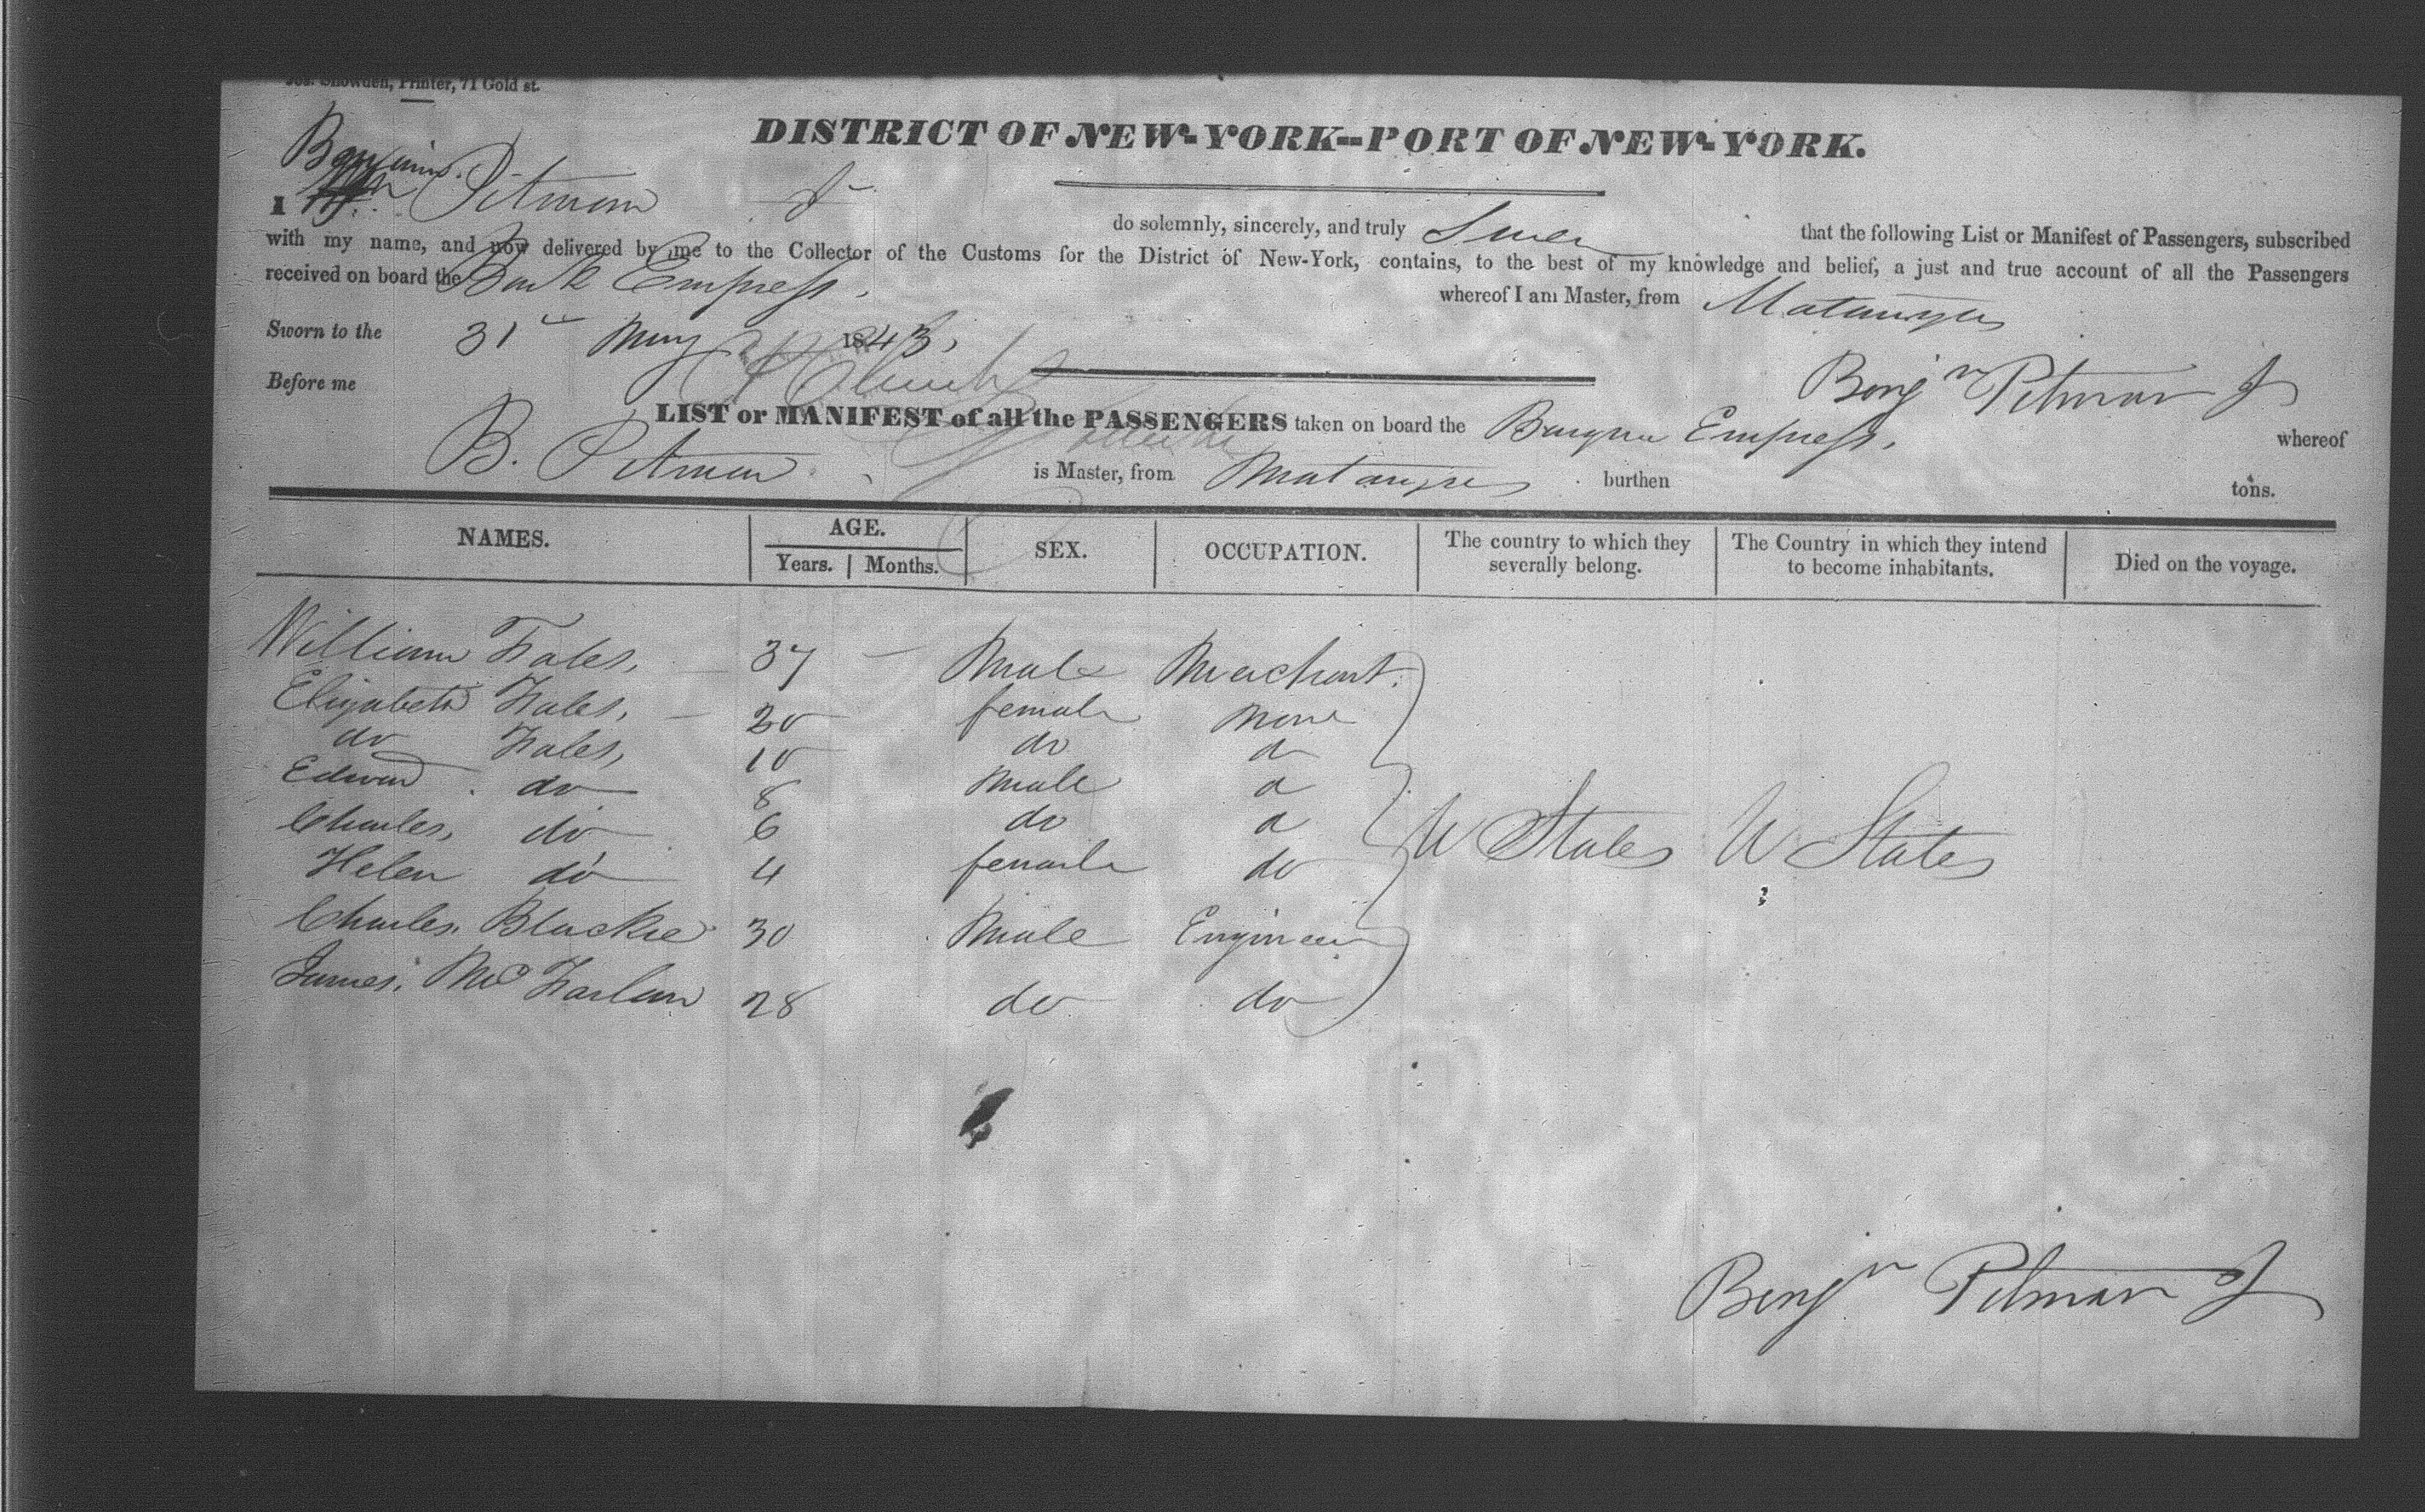 Jos. Snowden, Printer, 71 Gold st.
DISTRICT OF NEW-YORK--PORT OF NEW-YORK.
Benjamin
I Pitman Jr do solemnly, sincerely, and truly Swear that the following List or Manifest of Passengers, subscribed
with my name, and now delivered by me to the Collector of the Customs for the District of New-York, contains, to the best of my knowledge and belief, a just and true account of all the Passengers
received on board the Bark Empress, whereof I am Master, from Matanzas
Sworn to the 31st May 1843,
Before me Benjn Pitman Jr
LIST or MANIFEST of all the PASSENGERS taken on board the Barque Empress, whereof
B. Pitman is Master, from Matanzas burthen tons.
NAMES. AGE. Years. Months. SEX. OCCUPATION. The country to which they severally belong. The Country in which they intend to become inhabitants. Died on the voyage.
William Fales, 37 Male Merchant.
Elizabeth Fales, 20 female None
do Fales, 10 do do
Edward do 8 Male do
Charles, do 6 do do
U States U States
Helen do 4 female do
Charles Blackie 30 Male Engineer
James McFarlan 28 do do
Benjn Pitman Jr